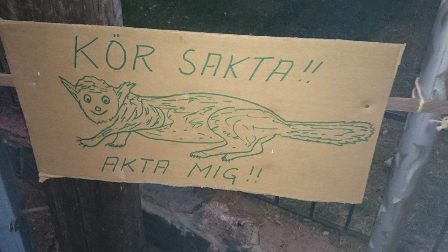 KÖR SAKTA!!
AKTA MIG!!